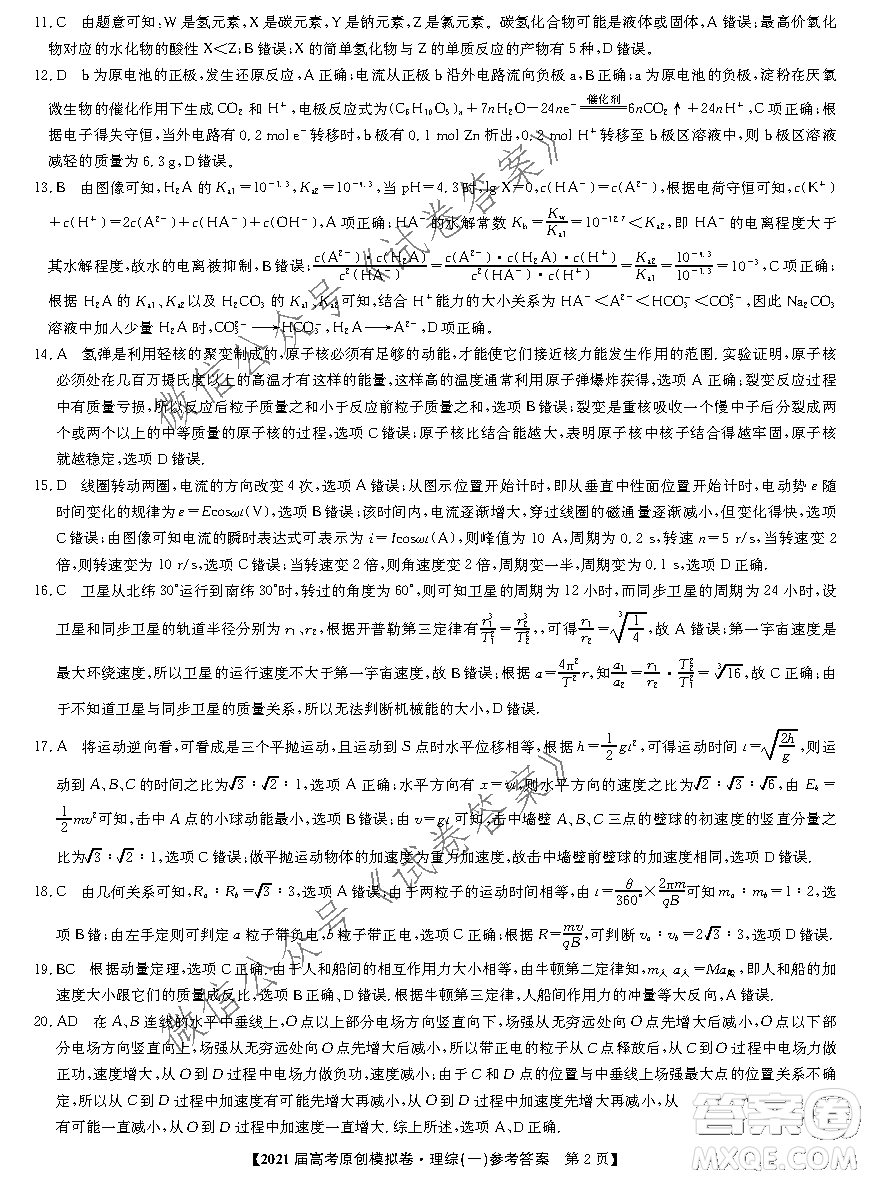 11. C 由题意可知:W 是氢元素,X 是碳元素,Y 是钠元素,Z 是氯元素。碳氢化合物可能是液体或固体,A 错误;最高价氧化
物对应的水化物的酸性 X<Z;B 错误;X 的简单氢化物与 Z 的单质反应的产物有 5 种,D 错误。
12. D b 为原电池的正极,发生还原反应,A 正确;电流从正极 b 沿外电路流向负极 a,B 正确;a 为原电池的负极,淀粉在厌氧
微生物的催化作用下生成 CO₂ 和 H⁺,电极反应式为(C₆H₁₀O₅)ₙ+7nH₂O−24ne⁻ 催化剂 6nCO₂↑+24nH⁺,C 项正确;根
据电子得失守恒,当外电路有 0.2 mol e⁻ 转移时,b 极有 0.1 mol Zn 析出,0.2 mol H⁺ 转移至 b 极区溶液中,则 b 极区溶液
减轻的质量为 6.3 g,D 错误。
13. B 由图像可知,H₂A 的 Kₐ₁=10⁻¹·³,Kₐ₂=10⁻⁴·³,当 pH=4.3 时,lg X=0,c(HA⁻)=c(A²⁻),根据电荷守恒可知,c(K⁺)
+c(H⁺)=2c(A²⁻)+c(HA⁻)+c(OH⁻),A 项正确;HA⁻的水解常数 Kₕ=Kw/Kₐ₁=10⁻¹²·⁷<Kₐ₂,即 HA⁻的电离程度大于
其水解程度,故水的电离被抑制,B 错误;c(A²⁻)·c(H₂A)/c²(HA⁻)=c(A²⁻)·c(H₂A)·c(H⁺)/c²(HA⁻)·c(H⁺)=Kₐ₂/Kₐ₁=10⁻⁴·³/10⁻¹·³=10⁻³,C 项正确;
根据 H₂A 的 Kₐ₁、Kₐ₂以及 H₂CO₃ 的 Kₐ₁、Kₐ₂可知,结合 H⁺能力的大小关系为 HA⁻<A²⁻<HCO₃⁻<CO₃²⁻,因此 Na₂CO₃
溶液中加入少量 H₂A 时,CO₃²⁻⟶HCO₃⁻,H₂A⟶A²⁻,D 项正确。
14. A 氢弹是利用轻核的聚变制成的,原子核必须有足够的动能,才能使它们接近核力能发生作用的范围. 实验证明,原子核
必须处在几百万摄氏度以上的高温才有这样的能量,这样高的温度通常利用原子弹爆炸获得,选项 A 正确;裂变反应过程
中有质量亏损,所以反应后粒子质量之和小于反应前粒子质量之和,选项 B 错误;裂变是重核吸收一个慢中子后分裂成两
个或两个以上的中等质量的原子核的过程,选项 C 错误;原子核比结合能越大,表明原子核中核子结合得越牢固,原子核
就越稳定,选项 D 错误.
15. D 线圈转动两圈,电流的方向改变 4 次,选项 A 错误;从图示位置开始计时,即从垂直中性面位置开始计时,电动势 e 随
时间变化的规律为 e=Ecosωt(V),选项 B 错误;该时间内,电流逐渐增大,穿过线圈的磁通量逐渐减小,但变化得快,选项
C 错误;由图像可知电流的瞬时表达式可表示为 i=Icosωt(A),则峰值为 10 A,周期为 0.2 s,转速 n=5 r/s,当转速变 2
倍,则转速变为 10 r/s,选项 C 错误;当转速变 2 倍,则角速度变 2 倍,周期变一半,周期变为 0.1 s,选项 D 正确.
16. C 卫星从北纬 30°运行到南纬 30°时,转过的角度为 60°,则可知卫星的周期为 12 小时,而同步卫星的周期为 24 小时,设
卫星和同步卫星的轨道半径分别为 r₁、r₂,根据开普勒第三定律有r₁³/T₁²=r₂³/T₂²,,可得r₁/r₂=∛(1/4),故 A 错误;第一宇宙速度是
最大环绕速度,所以卫星的运行速度不大于第一宇宙速度,故 B 错误;根据 a=4π²/T² r,知a₁/a₂=r₁/r₂·T₂²/T₁²=∛16,故 C 正确;由
于不知道卫星与同步卫星的质量关系,所以无法判断机械能的大小,D 错误.
17. A 将运动逆向看,可看成是三个平抛运动,且运动到 S 点时水平位移相等,根据 h=1/2 gt²,可得运动时间 t=√(2h/g),则运
动到 A、B、C 的时间之比为√3∶√2∶1,选项 A 正确;水平方向有 x=vt,则水平方向的速度之比为√2∶√3∶√6,由 Eₖ=
1/2 mv²可知,击中 A 点的小球动能最小,选项 B 错误;由 v=gt 可知,击中墙壁 A、B、C 三点的壁球的初速度的竖直分量之
比为√3∶√2∶1,选项 C 错误;做平抛运动物体的加速度为重力加速度,故击中墙壁前壁球的加速度相同,选项 D 错误.
18. C 由几何关系可知,Rₐ∶R_b=√3∶3,选项 A 错误;由于两粒子的运动时间相等,由 t=θ/360°×2πm/qB可知 mₐ∶m_b=1∶2,选
项 B 错;由左手定则可判定 a 粒子带负电,b 粒子带正电,选项 C 正确;根据 R=mv/qB,可判断 vₐ∶v_b=2√3∶3,选项 D 错误.
19. BC 根据动量定理,选项 C 正确.由于人和船间的相互作用力大小相等,由牛顿第二定律知,m人a人=Ma船,即人和船的加
速度大小跟它们的质量成反比,选项 B 正确,D 错误.根据牛顿第三定律,人船间作用力的冲量等大反向,A 错误.
20. AD 在 A、B 连线的水平中垂线上,O 点以上部分电场方向竖直向下,场强从无穷远处向 O 点先增大后减小,O 点以下部
分电场方向竖直向上,场强从无穷远处向 O 点先增大后减小,所以带正电的粒子从 C 点释放后,从 C 到 O 过程中电场力做
正功,速度增大,从 O 到 D 过程中电场力做负功,速度减小;由于 C 和 D 点的位置与中垂线上场强最大点的位置关系不确
定,所以从 C 到 D 过程中加速度有可能先增大再减小,从 O 到 D 过程中加速度有可能先增大再减小,从
有可能一直减小,从 O 到 D 过程中加速度可能一直增大. 综上所述,选项 A、D 正确.
【2021 届高考原创模拟卷·理综(一)参考答案 第 2 页】
微信公众号《试卷答案》
微信公众号《试卷答案》
答案卷
MXQE.COM